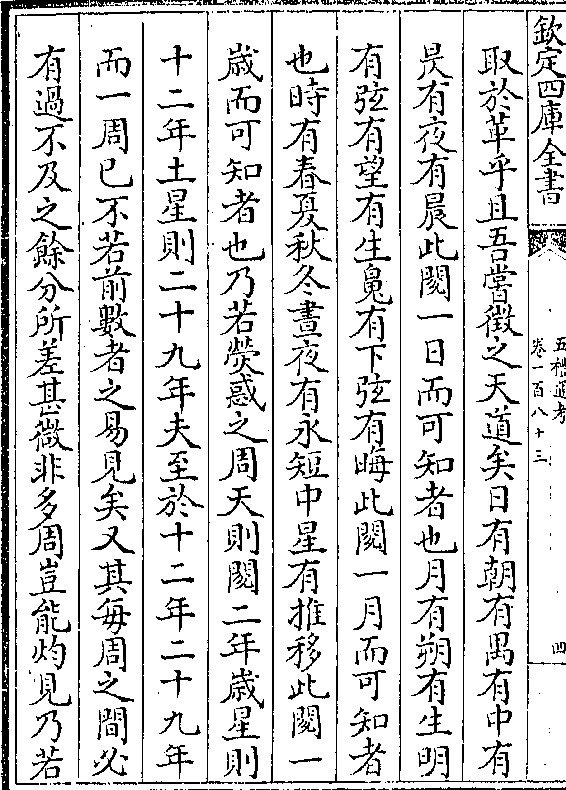 欽定四庫全書
五禮通考
卷一百八十三
四
取於革乎且吾嘗徴之天道矣日有朝有禺有中有
昃有夜有晨此閱一日而可知者也月有朔有生明
有弦有望有生魄有下弦有晦此閱一月而可知者
也時有春夏秋冬晝夜有永短中星有推移此閱一
歲而可知者也乃若熒惑之周天則閱二年歲星則
十二年土星則二十九年夫至於十二年二十九年
而一周已不若前數者之易見矣又其毎周之間必
有過不及之餘分所差甚微非多周豈能灼見乃若